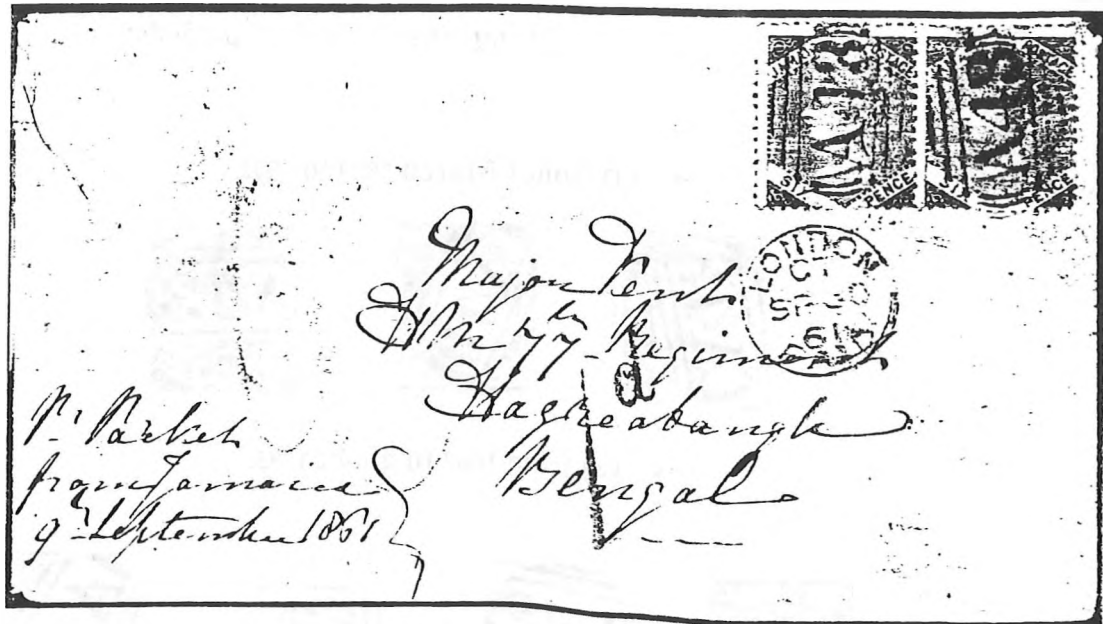 A 18
A 48
SIX PENCE
SIX PENCE
LONDON
SP 30
61
PAID
Major Kent
HM 77th Regiment
Bengal
Pr. Packet
from Jamaica
9th September 1861